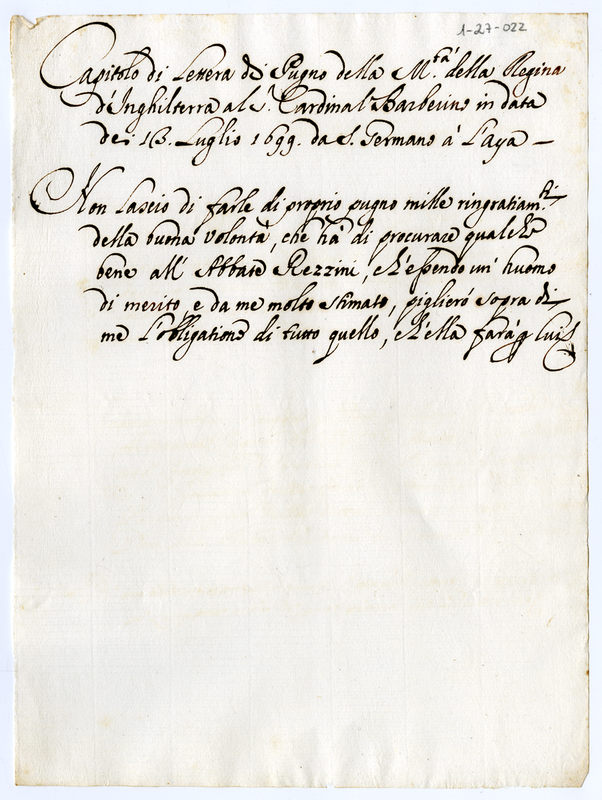 1-27-022
Capitolo di Lettera di Pugno della M.tà della Regina
d'Inghilterra al S.r Cardinal Barberino in data
dei 13. Luglio 1699. da S. Germano à L'aya –
Non Lascio di farle di proprio pugno mille ringratiam.ti
della buona volontà, che hà di procurare qualche
bene all' Abbate Rezzini, ch'essendo un' huomo
di merito, e da me molto stimato, piglierò sopra di
me l'obligatione di tutto quello, ch'ella farà p lui